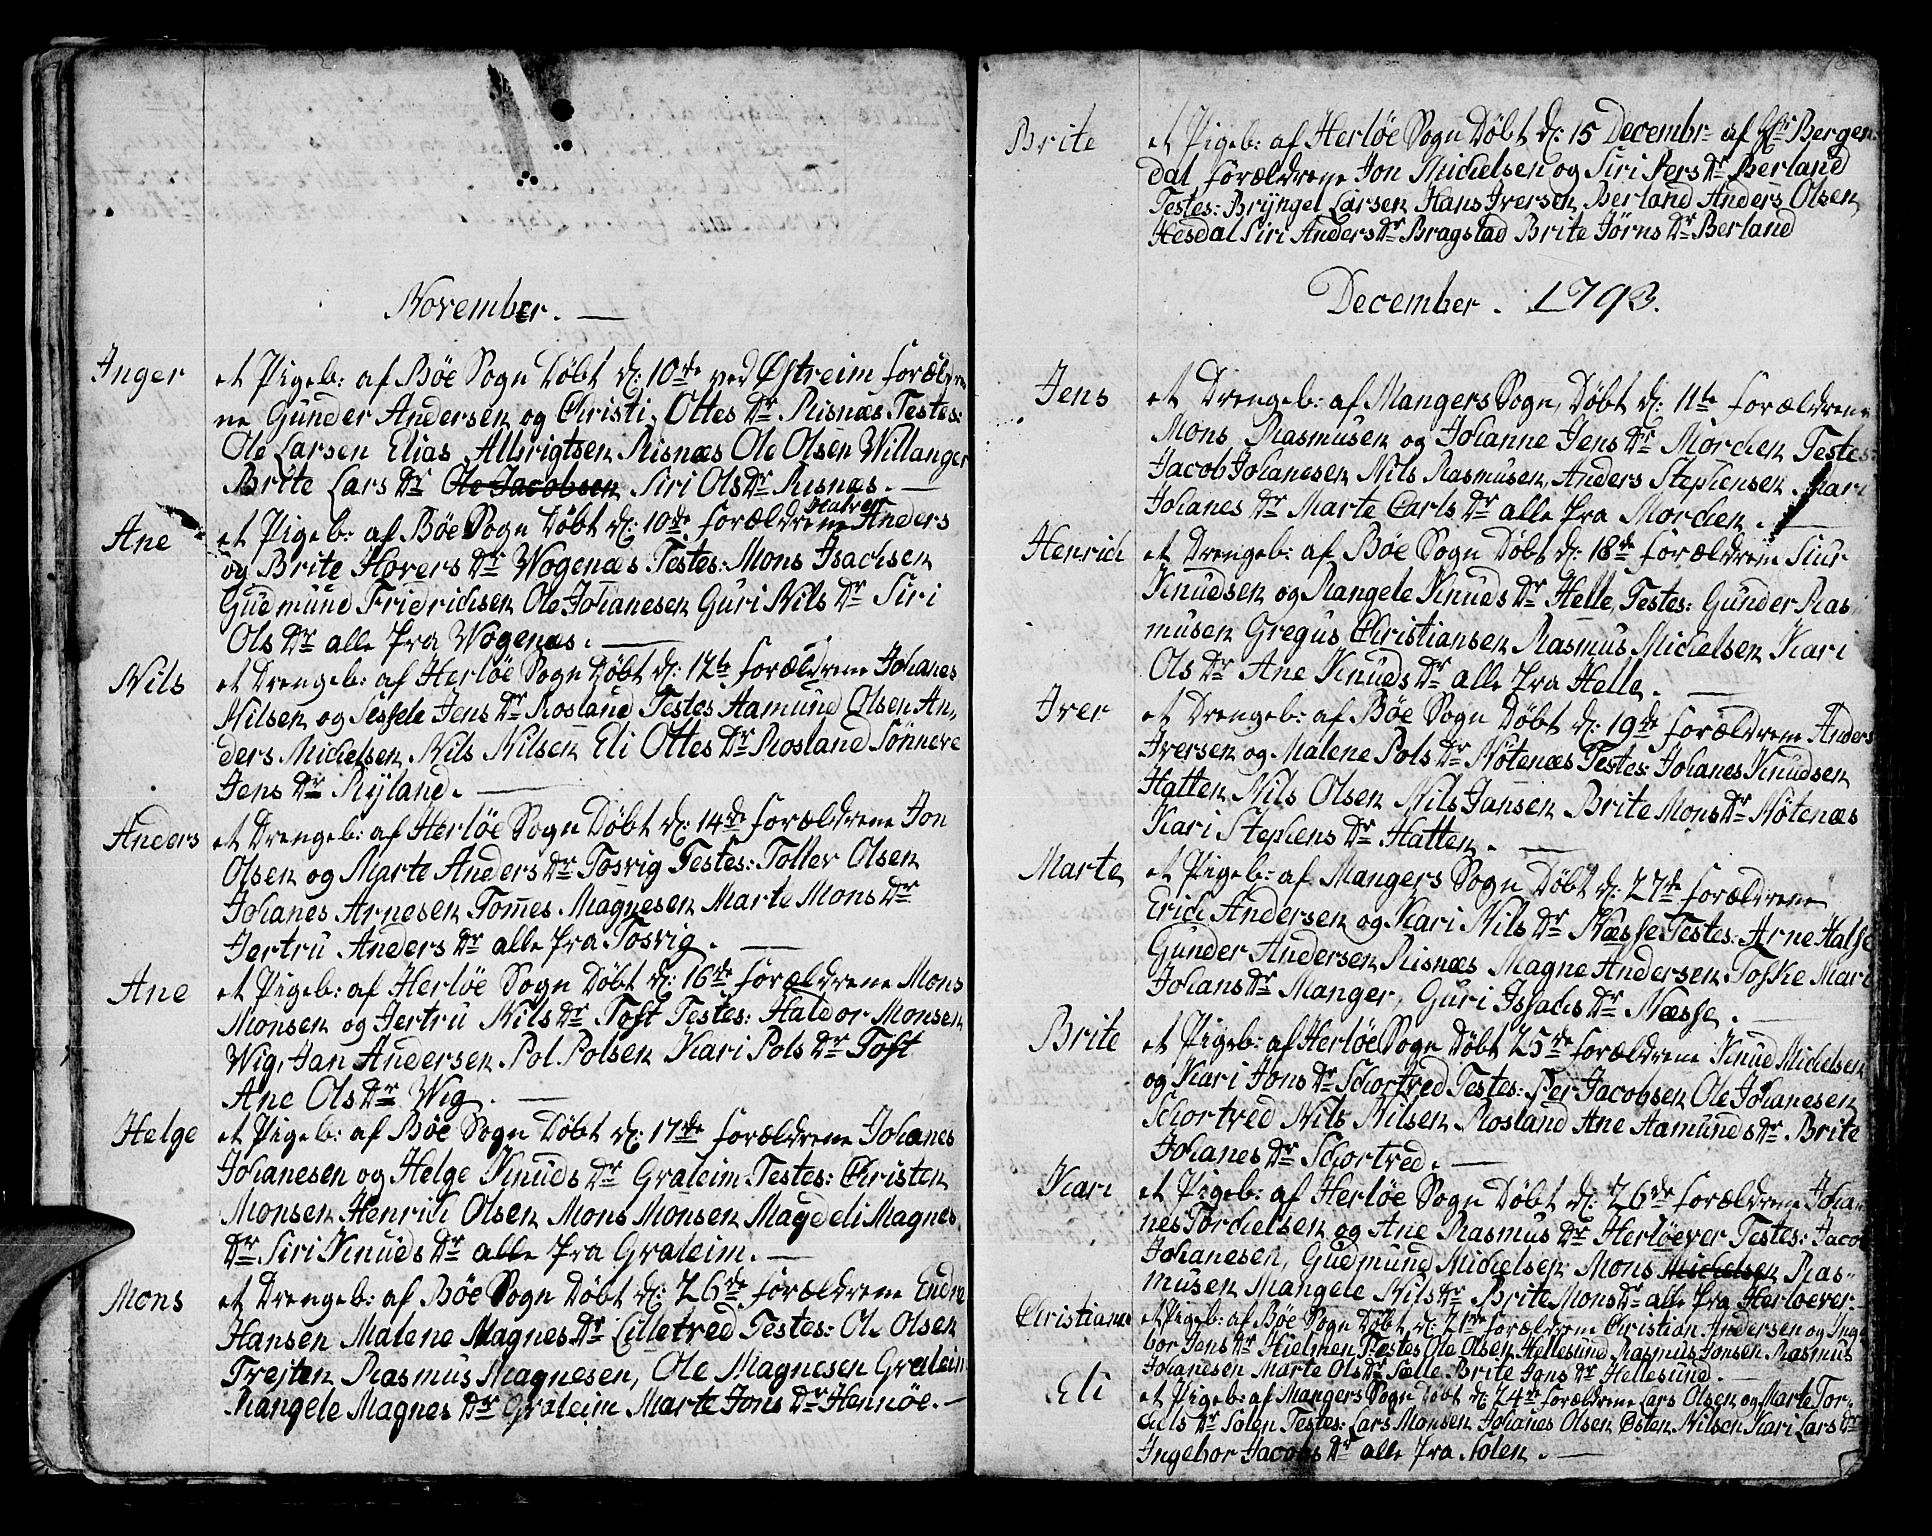 November. —
Inger
et Pigeb: af Böe Sogn Döbt d: 10de ved Østreim forældre
ne Gunder Andersen og Christi Ottes Dr Risnæs Testes:
Ole Larsen Elias Albrigtsen Risnæs Ole Olsen Willanger
Brite Lars Dr Ole Jacobsen Siri Ols Dr Risnæs. —
Ane
et Pigeb: af Böe Sogn Döbt d: 10de forældrene Anders
og Brite Hovers Dr Wogenæs Testes: Mons Isachsen
Gudmund Fridrichsen Ole Johanesen Guri Nils Dr Siri
Ols Dr alle fra Wogenæs. —
Nils
et Drengeb: af Herlöe Sogn Döbt d: 12te forældrene Johanes
Nilsen og Sessele Jens Dr Rosland Testes Aamund Olsen An,
ders Michelsen Nils Nilsen Eli Ottes Dr Rosland Sönneve
Jens Dr Ryland. —
Anders
et Drengeb: af Herlöe Sogn Döbt d: 14de forældrene Jon
Olsen og Marte Anders Dr Tosvig Testes: Tollev Olsen
Johanes Arnesen Tommes Magnesen Marte Mons Dr
Jertru Anders Dr alle fra Tosvig. —
Ane
et Pigeb: af Herlöe Sogn Döbt d: 16de forældrene Mons
Monsen og Jertru Nils Dr Toft Testes: Haldor Monsen
Wig, Jan Andersen Pol Polsen Kari Pols Dr Toft
Ane Ols Dr Wig. —
Helge
et Pigeb: af Böe Sogn Döbt d: 17de forældrene Johanes
Johanesen og Helge Knuds Dr Graleim Testes: Christen
Monsen Henrich Olsen Mons Monsen Magdeli Magnes
Dr Siri Knuds Dr alle fra Graleim. —
Mons
et Drengeb: af Böe Sogn Döbt d: 26de forældrene Endre
Hansen Malene Magnes Dr Lilletved Testes: Ole Olsen
Rasmus Magnesen, Ole Magnesen Graleim
Rangele Magnes Dr Graleim Marte Jons Dr Hennöe. —
Brite
et Pigeb: af Herlöe Sogn Döbt d: 15 Decembr af Hr Bergen
dal forældrene Jon Michelsen og Siri Pers Dr Berland
Testes: Bryngel Larsen Hans Iversen Berland Anders Olsen
Hesdal Siri Anders Dr Bragstad Brite Jörns Dr Berland
December. 1793.
Jens
et Drengeb: af Mangers Sogn, Döbt d: 11te forældrene
Mons Rasmusen og Johanne Jens Dr Morchen Testes:
Jacob Johanesen Nils Rasmusen Anders Stephensen Mari
Johanes Dr Marte Carls Dr alle fra Morchen. —
Henrich
et Drengeb: af Böe Sogn Döbt d: 18de forældrene Siur
Knudsen og Rangele Knuds Dr Helle, Testes: Gunder Ras
musen Gregus Christiansen Rasmus Michelsen Kari
Ols Dr Ane Knuds Dr alle fra Helle. —
Iver
et Drengeb: af Böe Sogn Döbt d: 19de forældrene Anders
Iversen og Malene Pols Dr Nötenæs Testes: Johanes Knudsen
Hatten Nils Olsen Nils Jansen Brite Mons Dr Nötenæs
Kari Stephens Dr Hatten. —
Marte
et Pigeb: af Mangers Sogn Döbt d: 27de forældrene
Erich Andersen og Kari Nils Dr Næsse Testes: Arne Halse
Gunder Andersen Risnæs Magne Andersen Toske Mari
Johans Dr Manger, Guri Issachs Dr Næsse. —
Brite
et Pigeb: af Herlöe Sogn Döbt 25de forældrene Knud Michelsen
og Kari Jons Dr Schortved Testes: Per Jacobsen Ole Johanesen
Schortved Nils Nilsen Rosland Ane Aamunds Dr Brite
Johanes Dr Schortved. —
Kari
et Pigeb: af Herlöe Sogn Döbt d: 26de forældrene Johan
nes Torchelsen og Ane Rasmus Dr Herlöever Testes: Jacob
Johanesen, Gudmund Michelsen Mons Michelsen Ras-
musen Mangele Nils Dr Brite Mons Dr alle fra Herloever.
Christiane
et Pigeb: af Böe Sogn Döbt d: 21de forældrene Christian Andersen og Inge
bor Jens Dr Hielmen Testes Ole Olsen Hellesund Rasmus Jonsen Rasmus
Johanesen Marte Ols Dr Sælle Brite Jans Dr Hellesund. —
Eli
et Pigeb: af Mangers Sogn Döbt d: 24de forældrene Lars Olsen og Marte Tor-
chels Dr Solen Testes: Lars Monsen Johanes Olsen Østen Nilsen Kari Lars Dr
Ingebor Jacobs Dr alle fra Solen. —